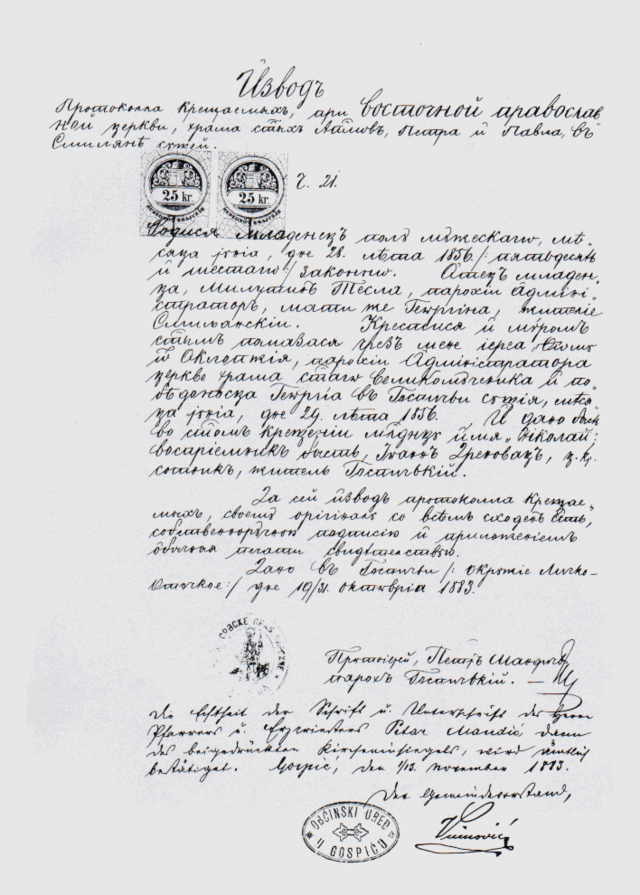 Изводъ
Протоколла крещаемыхъ, при восточной православ
ной церкви, храма стыхъ Апловъ, Петра и Павла, въ
Смилянѣ сущей.
25 kr. 25 kr. Ч. 21.
Родися младенецъ пола мужескаго, мѣ„
сяца јунја, дне 28. лѣта 1856./: пятьдесятъ
и шестаго:/ законно. Отецъ младен„
ца, Милутинъ Тесла, парохіи Админі„
страторъ, мати же Георгина, жителіе
Смилянскіи. Крестися и мгромъ
стымъ помазася чрезъ мене іереа
парохіи Администратора
церкве храма стаго великомученика и по„
бѣдоносца Георгіа въ Госпичи сущія, мѣся
ца јунја, дне 24. лѣта 1856. И дано
во стомъ крещеніи младенцу имя „Николай;
воспріемникъ бысть, Іоаннъ Дреновацъ, ц. кр.
сотникъ, житель Госпичкій.
За сей изводъ протоколла крещае„
мыхъ, своему орігиналу со всѣмъ сходенъ есть,
собственноручною подписію и приложеніемъ
обычныя печати свидѣтельствую.
Дано въ Госпичи /: окружіе Личко-
Оточкое:/ дне 19/31. октоврія 1883.
СРБСКЕ ПРАВ
Протоіерей, Петръ Мандичъ
парохъ Госпичкій.
Die Echtheit der Schrift u. Unterschrift des Herrn
Pfarrers u. Erzpriesters Petar Mandić, dann
des beigedrückten Kircheninsiegels, wird ämtlich
bestätiget. Gospić, den 1/13. November 1883.
Der Gemeindevorstand,
OBĆINSKI URED
U GOSPIĆU